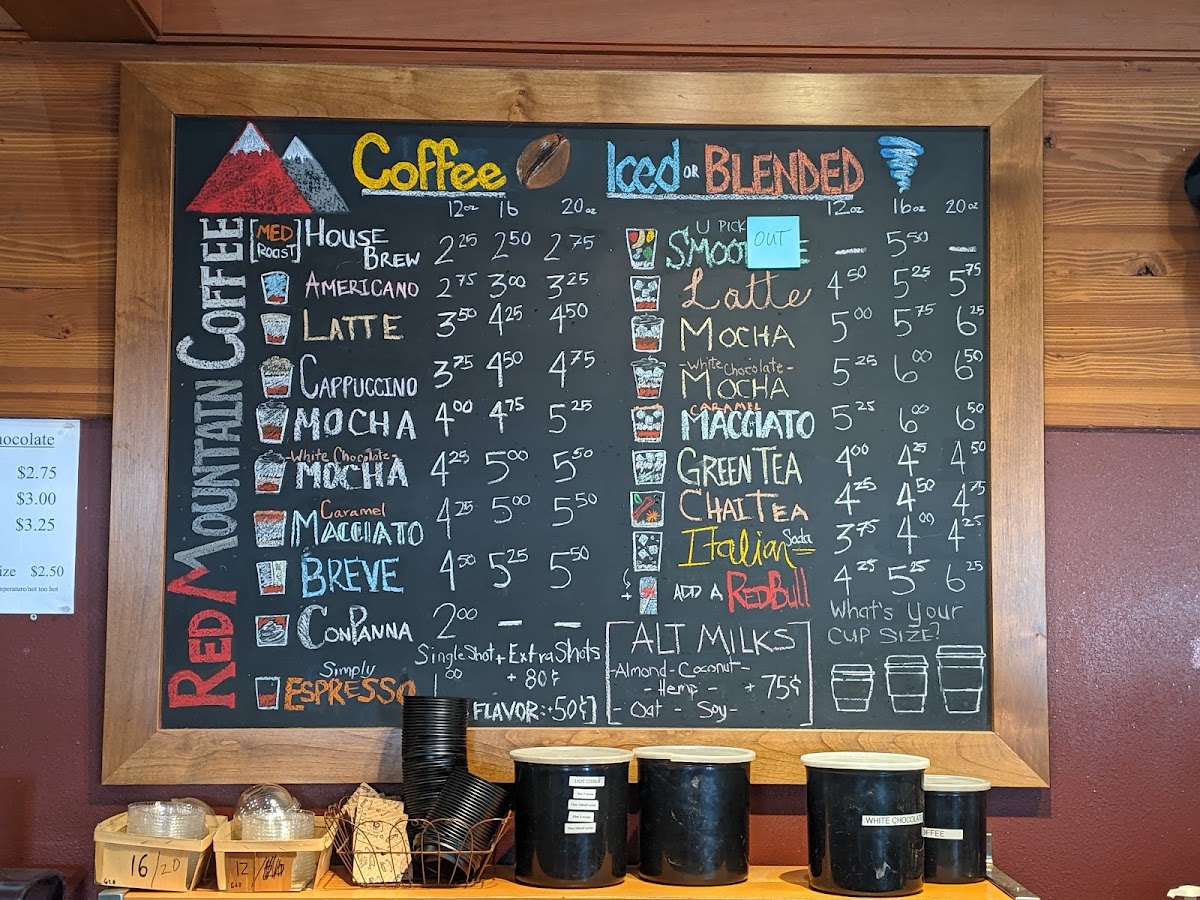 RED MOUNTAIN COFFEE
Coffee
12oz 16 20oz
[MED ROAST] HOUSE BREW 2 25 2 50 2 75
AMERICANO 2 75 3 00 3 25
LATTE 3 50 4 25 4 50
CAPPUCCINO 3 75 4 50 4 75
MOCHA 4 00 4 75 5 25
-White Chocolate-
MOCHA 4 25 5 00 5 50
Caramel
MACCIATO 4 25 5 00 5 50
BREVE 4 50 5 25 5 50
CONPANNA 2 00 — —
Single Shot + Extra Shots
Simply
ESPRESSO 1 00 + 80¢
FLAVOR: +50¢]
Iced OR BLENDED
12oz 16oz 20oz
U PICK
OUT
— 5 50 —
Latte 4 50 5 25 5 75
MOCHA 5 00 5 75 6 25
-White Chocolate-
MOCHA 5 25 6 00 6 50
CARAMEL
MACCIATO 5 25 6 00 6 50
GREEN TEA 4 00 4 25 4 50
CHAI TEA 4 25 4 50 4 75
Italian Soda 3 75 4 00 4 25
+ ADD A REDBULL 4 25 5 25 6 25
ALT MILKS
-Almond-Coconut-
-Hemp- +75¢
-Oat-Soy-
What's Your
CUP SIZE?
hocolate
$2.75
$3.00
$3.25
ize $2.50
mperature/not too hot
16/20
12
HOT COCOA
WHITE CHOCOLATE
OFFEE